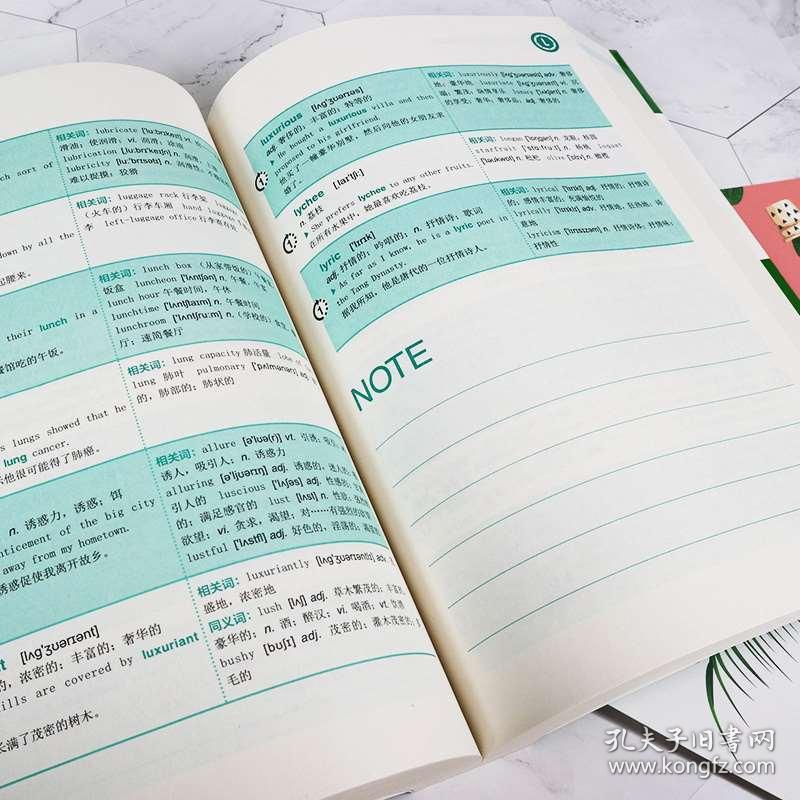 相关词: lubricate [ˈluːbrɪkeɪt] vt.
滑油, 使润滑; vi. 润滑; 涂油
lubrication [ˌluːbrɪˈkeɪʃn] n. 润滑;
lubricity [luːˈbrɪsəti] n. 润滑性;
难以捉摸; 狡猾
ch sort of
相关词: luggage rack 行李架 luggage
(火车的) 行李车厢 hand luggage
李 left-luggage office 行李寄存处
down by all the
起腰来。
相关词: lunch box (从家带饭的) 午餐
饭盒 luncheon [ˈlʌntʃən] n. 午餐,
lunch hour 午餐时间, 午休
lunchtime [ˈlʌntʃtaɪm] n. 午餐时间
lunchroom [ˈlʌntʃruːm] n. (学校的) 食
厅; 速简餐厅
their lunch in a
餐馆吃的午饭。
相关词: lung capacity 肺活量 lobe of
lung 肺叶 pulmonary [ˈpʌlmənəri] adj.
的, 肺部的; 肺状的
s lungs showed that he
lung cancer.
示他很可能得了肺癌。
相关词: allure [əˈlʊə(r)] vt. 引诱;
诱人, 吸引人; n. 诱惑力
alluring [əˈljʊərɪŋ] adj. 诱惑的, 迷人的;
引人的 luscious [ˈlʌʃəs] adj. 性感的;
的; 满足感官的 lust [lʌst] n. 性欲,
欲望; vi. 贪求, 渴望; 对……有强烈的欲望
lustful [ˈlʌstfl] adj. 好色的, 淫荡的;
n. 诱惑力, 诱惑; 饵
nticement of the big city
away from my hometown.
诱惑促使我离开故乡。
相关词: luxuriantly [lʌɡˈʒʊəriəntli] adv.
盛地, 浓密地
同义词: lush [lʌʃ] adj. 草木繁茂的; 丰富的,
豪华的; n. 酒; 醉汉; vi. 喝酒; vt. 饮
bushy [ˈbʊʃɪ] adj. 茂密的; 灌木茂密的;
毛的
t [lʌɡˈʒʊərɪənt]
的, 浓密的; 丰富的; 奢华的
ills are covered by luxuriant
长满了茂密的树木。
L
luxurious [lʌɡˈʒʊərɪəs]
adj. 奢侈的; 丰富的; 特等的
He bought a luxurious villa and then
proposed to his girlfriend.
他买了一幢豪华别墅, 然后向他的女朋友求
婚了。
相关词: luxuriously [lʌɡˈʒʊəriəsli] adv. 奢侈
地; 豪华地 luxuriate [lʌɡˈʒʊərieɪt] vi.
繁茂; 纵情享乐 luxury [ˈlʌkʃəri] n. 奢侈
的享受; 奢华, 奢侈品; adj. 奢侈的
1
lychee [ˌlaɪˈtʃiː]
n. 荔枝
She prefers lychee to any other fruits.
在所有水果中, 她最喜欢吃荔枝。
相关词: longan [ˈlɒŋɡən] n. 龙眼, 桂圆
starfruit [ˈstɑːfruːt] n. 杨桃 loquat
[ˈləʊkwɒt] n. 枇杷 olive [ˈɒlɪv] n. 橄榄
1
lyric [ˈlɪrɪk]
adj. 抒情的; 吟唱的; n. 抒情诗; 歌词
As far as I know, he is a lyric poet in
the Tang Dynasty.
据我所知, 他是唐代的一位抒情诗人。
相关词: lyrical [ˈlɪrɪkl] adj. 抒情的, 抒情诗
的; 感情丰富的, 充满愉悦的
lyrically [ˈlɪrɪkli] adv. 抒情地, 狂热地, 诗
意地
lyricism [ˈlɪrɪsɪzəm] n. 抒情诗体; 抒情味;
抒情性
1
NOTE
孔夫子旧书网
www.kongfz.com